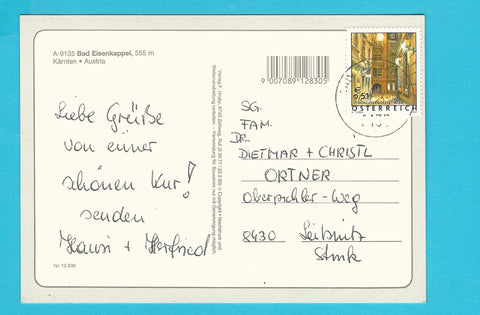 A-9135 Bad Eisenkappel, 555 m
Kärnten • Austria
Liebe Grüße
von einer
schönen Kur!
senden
Hansi + Herfried
Nr. 12.830
9 007089 128305
€ 0,51
ÖSTERREICH
SG.
FAM.
DR.
DIETMAR + CHRISTL
ORTNER
Oberpichler-Weg
8430 Leibnitz
Stmk